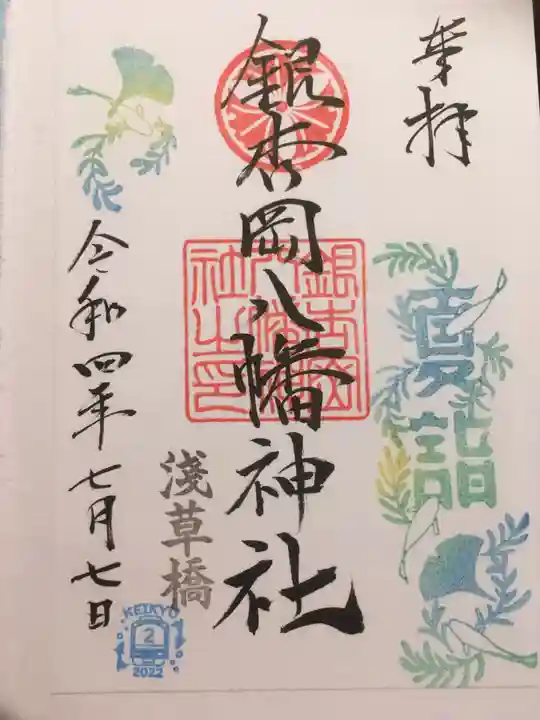 奉拝
夏詣
銀杏岡八幡神社
銀杏岡八幡神社之印
淺草橋
令和四年七月七日
KEIKYU
2
2022